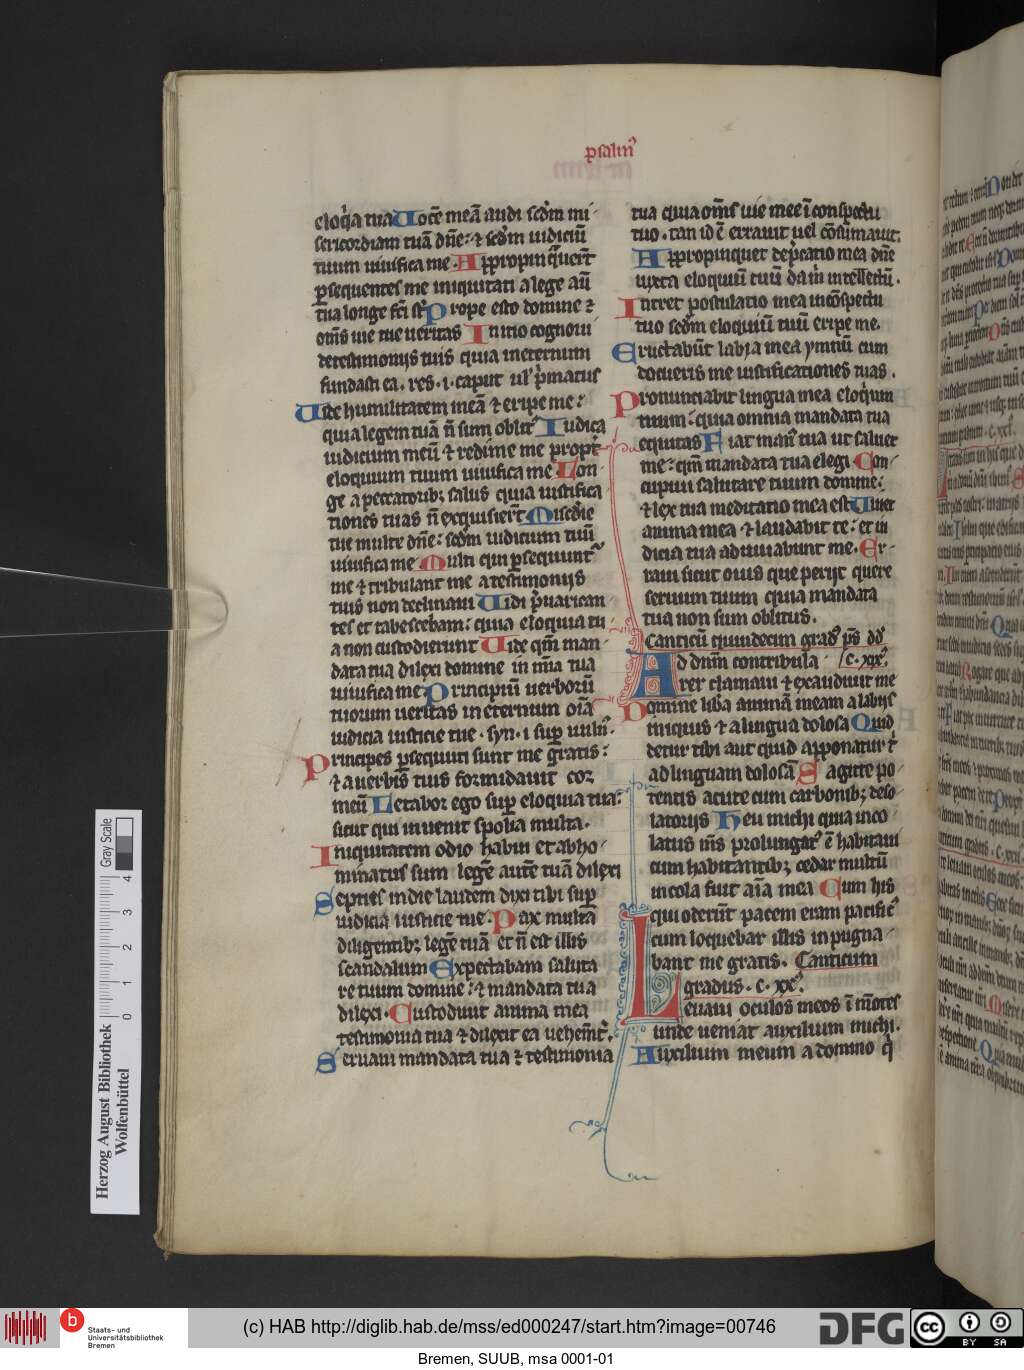 psalmꝰ
eloq̇a tua Uocē meā audi scd̄m mi-
sericordiam tuā dn̄e: ⁊ scd̄m iudiciū
tuum uiuifica me. Appropinq̄uert̄
p̱sequentes me iniquitati a lege aū
tua longe fc̄i st̄ Prope esto domine ⁊
om̄s uie tue ueritas Initio cognoui
de testimonijs tuis quia in eternum
fundasti ea. res. i. caput ul' p̄matus
Uide humilitatem meā ⁊ eripe me:
quia legem tuā n̄ sum oblitꝰ Iudica
iudicium meū ⁊ redime me propt̄
eloquium tuum uiuifica me Lon-
ge a peccatoribꝫ salus quia iustifica
tiones tuas n̄ exquisiert̄ Mis̄cdie
tue multe dn̄e: scd̄m iudicium tuū
uiuifica me Multi qui p̱sequunt᷑
me ⁊ tribulant me a testimonijs
tuis non declinaui Uidi p̄uarican-
tes et tabescebam: quia eloquia tu
a non custodierunt Uide qm̄ man-
data tua dilexi domine in mīa tua
uiuifica me Principiū uerborū
tuorum ueritas in eternum oīa
iudicia iusticie tue. syn. i sup̱ uuln̄.
Principes p̱secuti sunt me gratis:
⁊ a uerbis tuis formidauit cor
meū Letabor ego sup̱ eloquia tua:
sicut qui inuenit spolia multa.
Iniquitatem odio habui et abho-
minatus sum legē autē tuā dilexi
Septies in die laudem dixi tibi sup̱
iudicia iusticie tue. Pax multa
diligentibꝫ legē tuā et n̄ est illis
scandalum Expectabam saluta
re tuum domine: ⁊ mandata tua
dilexi. Custodiuit anima mea
testimonia tua ⁊ dilexit ea uehem̄t̄.
Seruaui mandata tua ⁊ testimonia
tua quia om̄s uie mee ī conspectu
tuo. tan id ē errauit uel cōsumauit.
Appropinquet dep̄catio mea dn̄e
iuxta eloquiū tuū da m̄ intellectū.
Intret postulatio mea in cōspectu
tuo scd̄m eloquiū tuū eripe me.
Eructabūt labia mea ymnū cum
docueris me iustificationes tuas.
Pronunciabit lingua mea eloq̇um
tuum: quia omnia mandata tua
equitas Fiat manꝰ tua ut saluet
me: qm̄ mandata tua elegi Con-
cupiui salutare tuum domine:
⁊ lex tua meditatio mea est Uiuet
anima mea ⁊ laudabit te: et iu
dicia tua adiuuabunt me. Er-
raui sicut ouis que perijt quere
seruum tuum quia mandata
tua non sum oblitus.
Canticū quindecim gradꝰ ps̄ dd̄
Ad dn̄m cum tribula- c. xixꝰ.
rer clamaui ⁊ exaudiuit me
Domine liba animā meam a labijs
iniquis ⁊ a lingua dolosa Quid
detur tibi aut quid apponatur t̄
ad linguam dolosā Sagitte po-
tentis acute cum carbonibꝫ deso-
latorijs Heu michi quia inco
latus m̄s prolungatꝰ ē habitaui
cum habitantibꝫ cedar multū
incola fuit aīa mea Cum his
qui oderūt pacem eram pacificꝰ
cum loquebar illis inpugna-
bant me gratis. Canticum
gradus. c. xxꝰ.
Leuaui oculos meos ī mōtes
unde ueniat auxilium michi.
Auxilium meum a domino q̇
Herzog August Bibliothek
Wolfenbüttel
Gray Scale
0 1 2 3 4
b Staats- und
Universitätsbibliothek
Bremen
(c) HAB http://diglib.hab.de/mss/ed000247/start.htm?image=00746
DFG
cc BY SA
Bremen, SUUB, msa 0001-01